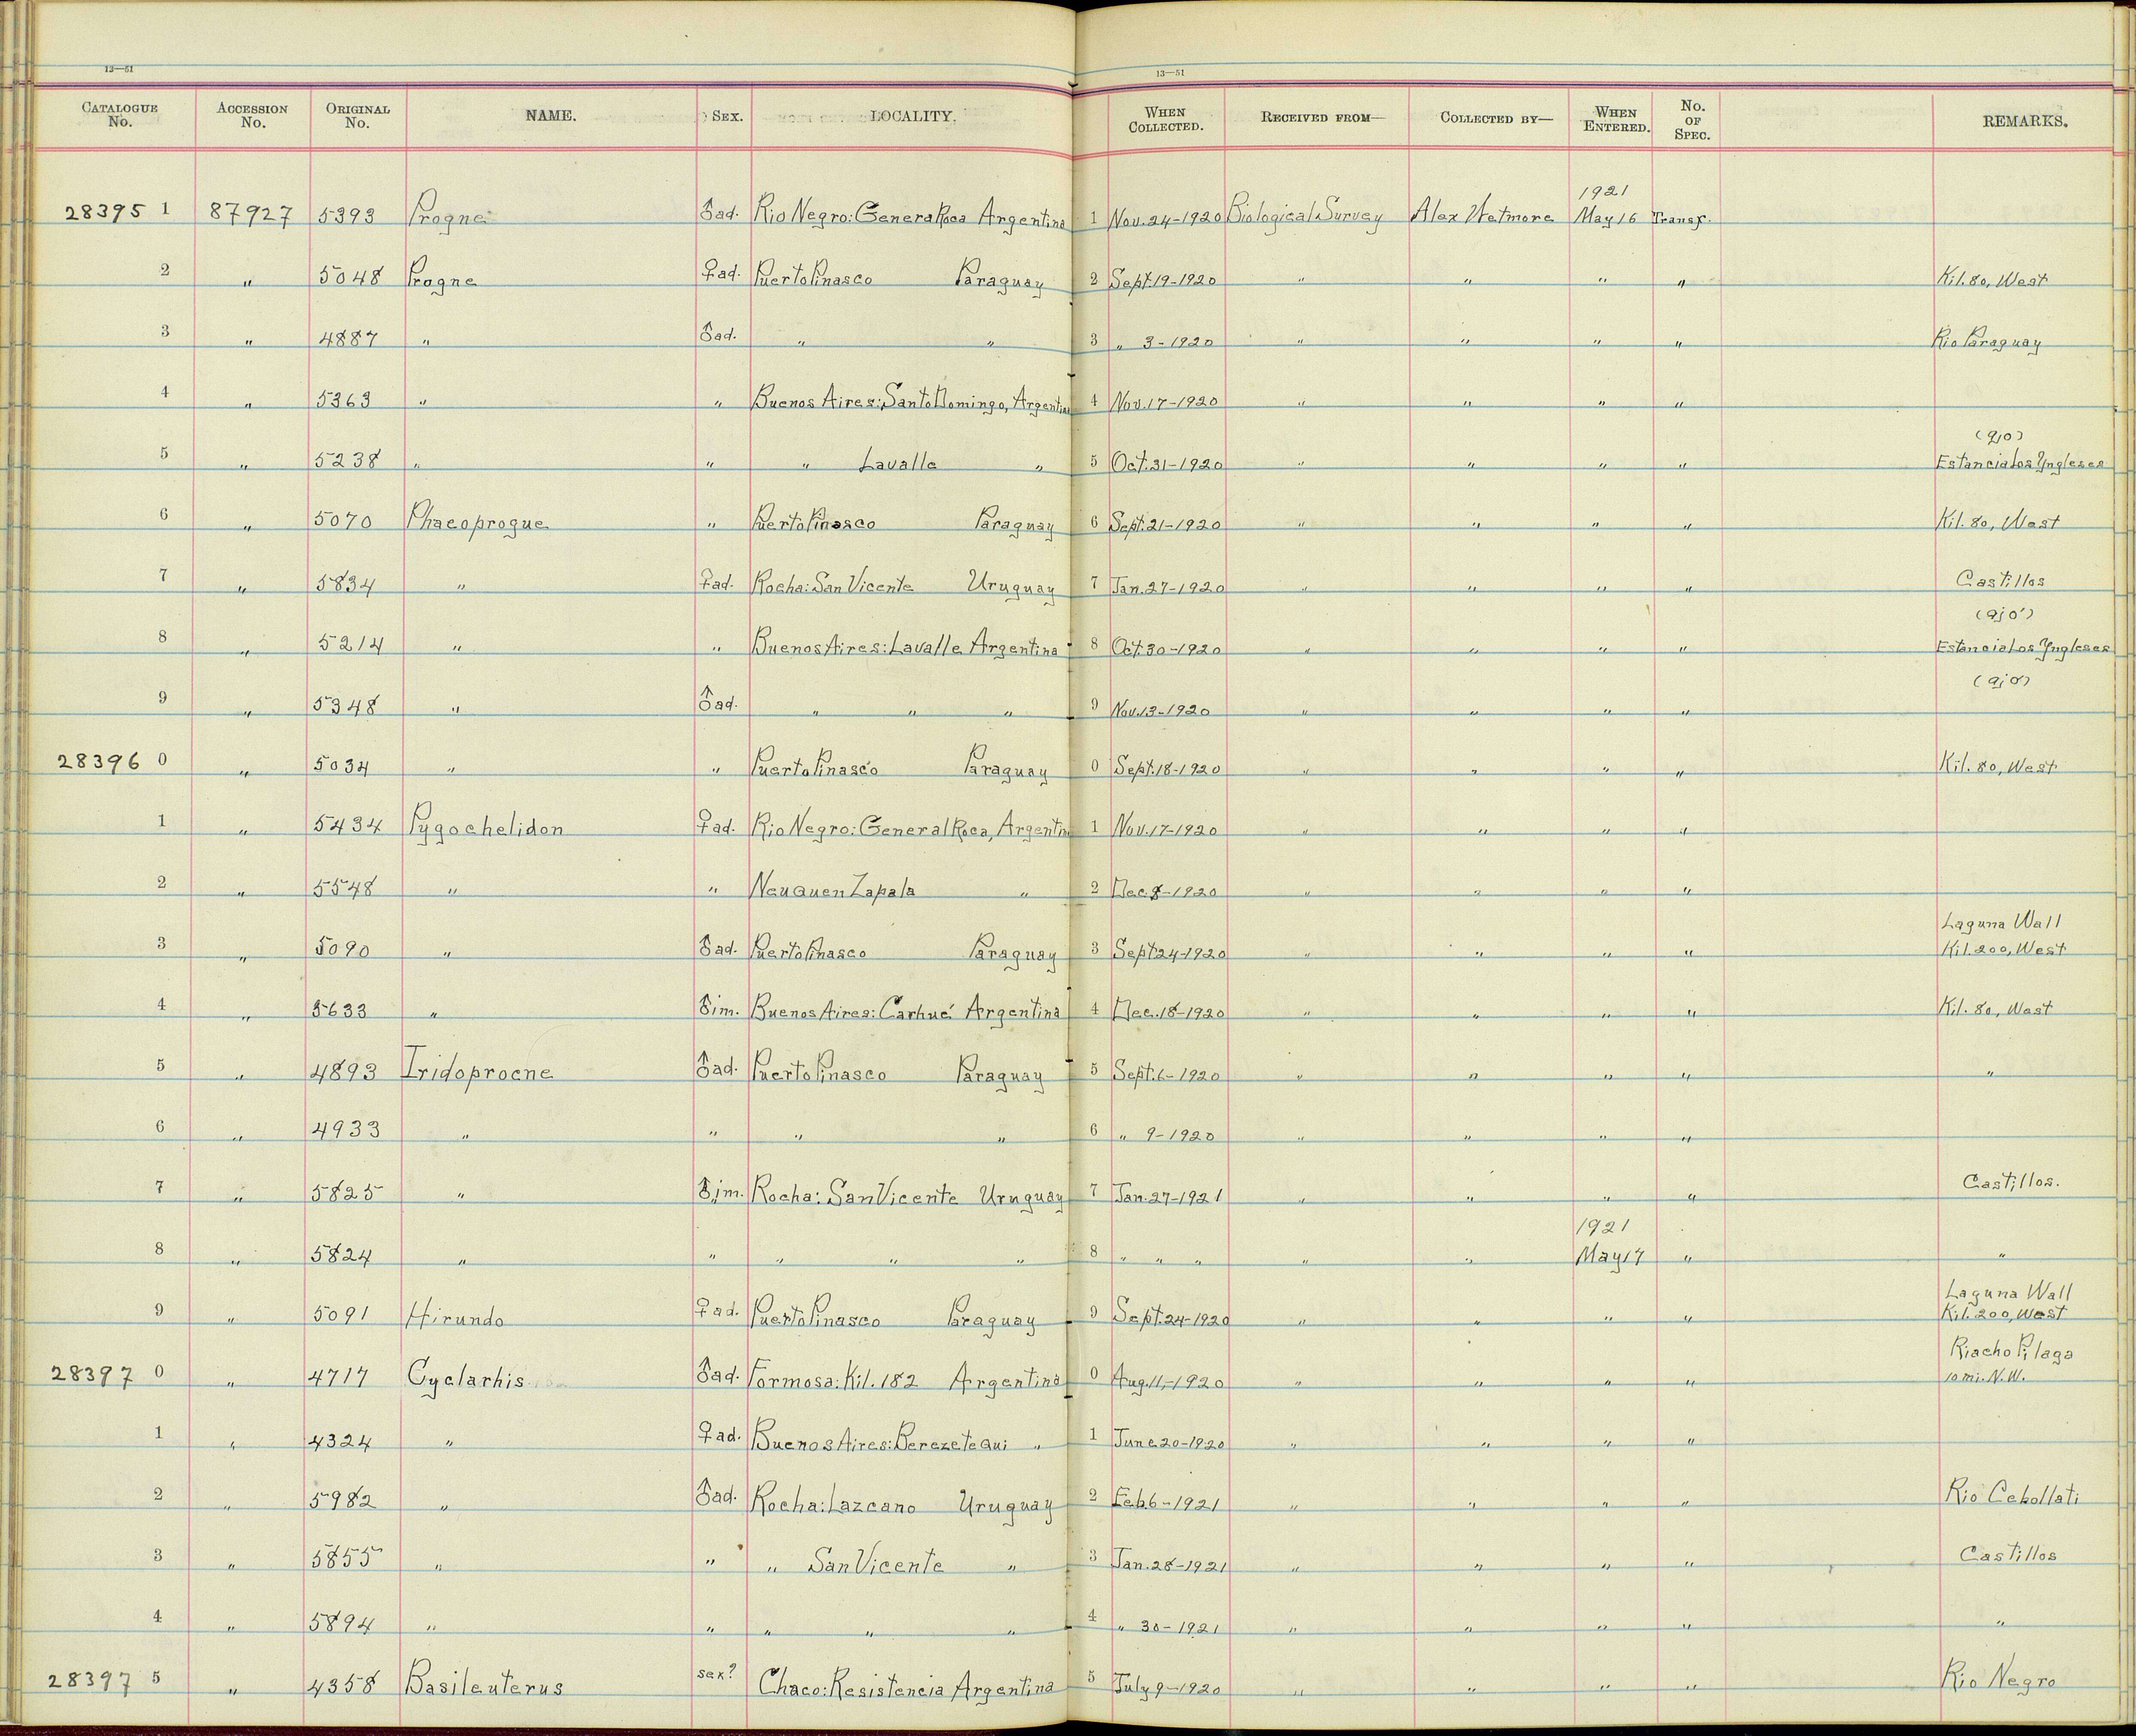 13—51
13—51
CATALOGUE No. ACCESSION No. ORIGINAL No. NAME. SEX. LOCALITY. WHEN COLLECTED. RECEIVED FROM— COLLECTED BY— WHEN ENTERED. No. OF SPEC. REMARKS.
1921
28395 1 87927 5393 Progne ♂ad. Rio Negro: General Roca Argentina 1 Nov. 24-1920 Biological Survey Alex Wetmore May 16 Transf.
2 " 5048 Progne ♀ad. Puerto Pinasco Paraguay 2 Sept. 19-1920 " " " " Kil. 80, West
3 " 4887 " ♂ad. " " 3 " 3-1920 " " " " Rio Paraguay
4 " 5363 " " Buenos Aires: Santo Domingo, Argentina 4 Nov. 17-1920 " " " "
(ajo)
5 " 5238 " " " Lavalle " 5 Oct. 31-1920 " " " " Estancia Los Yngleses
6 " 5070 Phaeoprogne " Puerto Pinasco Paraguay 6 Sept. 21-1920 " " " " Kil. 80, West
7 " 5834 " ♀ad. Rocha: San Vicente Uruguay 7 Jan. 27-1920 " " " " Castillos
(ajo)
8 " 5214 " " Buenos Aires: Lavalle Argentina 8 Oct. 30-1920 " " " " Estancia Los Yngleses
(ajo)
9 " 5348 " ♂ad. " " " 9 Nov. 13-1920 " " " "
28396 0 " 5034 " " Puerto Pinasco Paraguay 0 Sept. 18-1920 " " " " Kil. 80, West
1 " 5434 Pygochelidon ♀ad. Rio Negro: General Roca, Argentina 1 Nov. 17-1920 " " " "
2 " 5548 " " Neuquen Zapala " 2 Dec. 8-1920 " " " "
Laguna Wall
3 " 5090 " ♂ad. Puerto Pinasco Paraguay 3 Sept 24-1920 " " " " Kil. 200, West
4 " 5633 " ♂im. Buenos Aires: Carhué Argentina 4 Dec. 18-1920 " " " " Kil. 80, West
5 " 4893 Iridoprocne ♂ad. Puerto Pinasco Paraguay 5 Sept. 6-1920 " " " " "
6 " 4933 " " " " 6 " 9-1920 " " " "
7 " 5825 " ♂im. Rocha: San Vicente Uruguay 7 Jan. 27-1921 " " " " Castillos.
1921
8 " 5824 " " " " " 8 " " " " " May 17 " "
Laguna Wall
9 " 5091 Hirundo ♀ad. Puerto Pinasco Paraguay 9 Sept. 24-1920 " " " " Kil. 200, West
Riacho Pilaga
28397 0 " 4717 Cyclarhis ♂ad. Formosa: Kil. 182 Argentina 0 Aug. 11,-1920 " " " " 10 mi. N.W.
1 " 4324 " ♀ad. Buenos Aires: Berezetequi " 1 June 20-1920 " " " "
2 " 5982 " ♂ad. Rocha: Lazcano Uruguay 2 Feb. 6-1921 " " " " Rio Cebollati
3 " 5855 " " " San Vicente " 3 Jan. 28-1921 " " " " Castillos
4 " 5894 " " " " " 4 " 30-1921 " " " " "
28397 5 " 4358 Basileuterus sex? Chaco: Resistencia Argentina 5 July 9-1920 " " " " Rio Negro